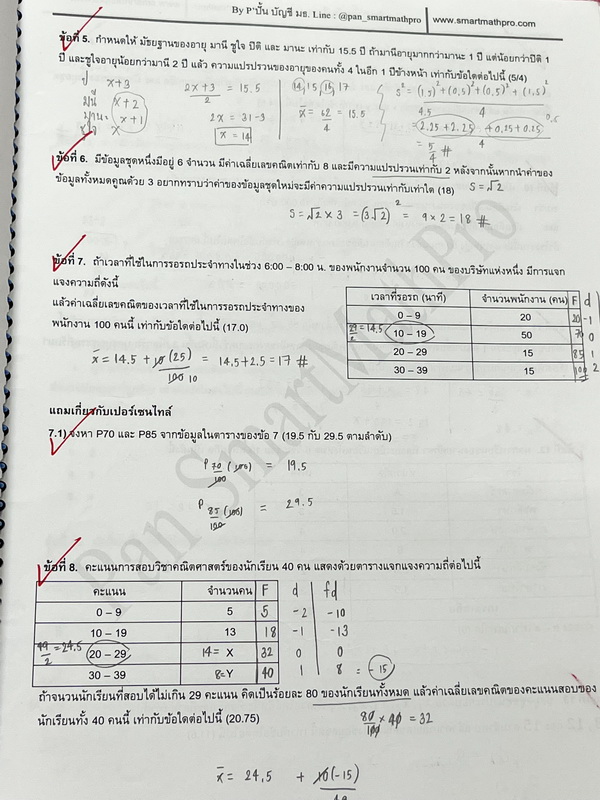 By P'ปั้น บัญชี มธ. Line : @pan_smartmathpro www.smartmathpro.com
ข้อที่ 5. กำหนดให้ มัธยฐานของอายุ มานี ชูใจ ปิติ และ มานะ เท่ากับ 15.5 ปี ถ้ามานีอายุมากกว่ามานะ 1 ปี แต่น้อยกว่าปิติ 1
ปี และชูใจอายุน้อยกว่ามานี 2 ปี แล้ว ความแปรปรวนของอายุของคนทั้ง 4 ในอีก 1 ปีข้างหน้า เท่ากับข้อใดต่อไปนี้ (5/4)
ป x+3
มนี x+2
มานะ x+1
ชูใจ x
2x+3/2 = 15.5
2x = 31-3
x = 14
14, 15, 16, 17
x̄ = 62/4 = 15.5
s² = (1.5)² + (0.5)² + (0.5)² + (1.5)²
4
4.5 0.5
= 2.25+2.25 + 0.25+0.25
4
= 5/4 #
ข้อที่ 6. มีข้อมูลชุดหนึ่งมีอยู่ 6 จำนวน มีค่าเฉลี่ยเลขคณิตเท่ากับ 8 และมีความแปรปรวนเท่ากับ 2 หลังจากนั้นหากนำค่าของ
ข้อมูลทั้งหมดคูณด้วย 3 อยากทราบว่าค่าของข้อมูลชุดใหม่จะมีค่าความแปรปรวนเท่ากับเท่าใด (18) S = √2
S = √2 × 3 = (3√2)² = 9×2 = 18 #
ข้อที่ 7. ถ้าเวลาที่ใช้ในการรอรถประจำทางในช่วง 6:00 – 8:00 น. ของพนักงานจำนวน 100 คน ของบริษัทแห่งหนึ่ง มีการแจก
แจงความถี่ดังนี้
แล้วค่าเฉลี่ยเลขคณิตของเวลาที่ใช้ในการรอรถประจำทางของ
พนักงาน 100 คนนี้ เท่ากับข้อใดต่อไปนี้ (17.0)
x̄ = 14.5 + 10(25)/100 10 = 14.5+2.5 = 17 #
เวลาที่รอรถ (นาที) จำนวนพนักงาน (คน) F d
0 – 9 20 20 -1
29/2 = 14.5 10 – 19 50 70 0
20 – 29 15 85 1
30 – 39 15 100 2
แถมเกี่ยวกับเปอร์เซนไทล์
7.1) จงหา P70 และ P85 จากข้อมูลในตารางของข้อ 7 (19.5 กับ 29.5 ตามลำดับ)
P 70/100 (100) = 19.5
P 85/100 (100) = 29.5
ข้อที่ 8. คะแนนการสอบวิชาคณิตศาสตร์ของนักเรียน 40 คน แสดงด้วยตารางแจกแจงความถี่ต่อไปนี้
คะแนน จำนวนคน F d fd
0 – 9 5 5 -2 -10
10 – 19 13 18 -1 -13
49/2 = 24.5 20 – 29 14= X 32 0 0
30 – 39 8=Y 40 1 8 = -15
ถ้าจนวนนักเรียนที่สอบได้ไม่เกิน 29 คะแนน คิดเป็นร้อยละ 80 ของนักเรียนทั้งหมด แล้วค่าเฉลี่ยเลขคณิตของคะแนนสอบของ
นักเรียนทั้ง 40 คนนี้ เท่ากับข้อใดต่อไปนี้ (20.75) 80/100 × 40 = 32
x̄ = 24.5 + 10(-15)
Pan SmartMathPro